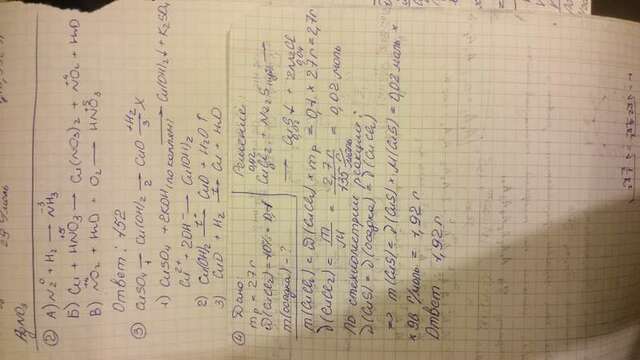 AgNO3
② А) N2 + H2 → NH3
Б) Cu + HNO3 → Cu(NO3)2 + NO2 + H2O
В) NO2 + H2O + O2 → HNO3
Ответ: 452
③ CuSO4 → Cu(OH)2 → CuO → X
1) CuSO4 + 2KOH → Cu(OH)2↓ + K2SO4
Cu2+ + 2OH- → Cu(OH)2
2) Cu(OH)2 → CuO + H2O↑
3) CuO + H2 → Cu + H2O
④ Дано:
mр = 27 г
ω(CuCl2) = 10% = 0,1
m(осадка) - ?
Решение
CuCl2 + Na2S
→ CuS↓ + 2NaCl
m(CuCl2) = ω(CuCl2) × mр = 0,1 × 27 г = 2,7 г
ν(CuCl2) = m/M = 2,7 г / 135 г/моль = 0,02 моль
По стехиометрии реакции:
ν(CuS) = ν(осадка) = ν(CuCl2)
=> m(CuS) = ν(CuS) × M(CuS) = 0,02 моль ×
× 96 г/моль = 1,92 г
Ответ: 1,92 г